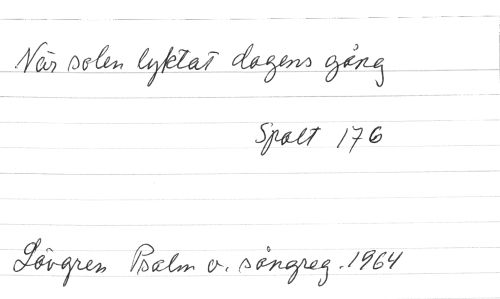 När solen lyktat dagens gång
Spalt 176
Lövgren Psalm o. sångreg. 1964